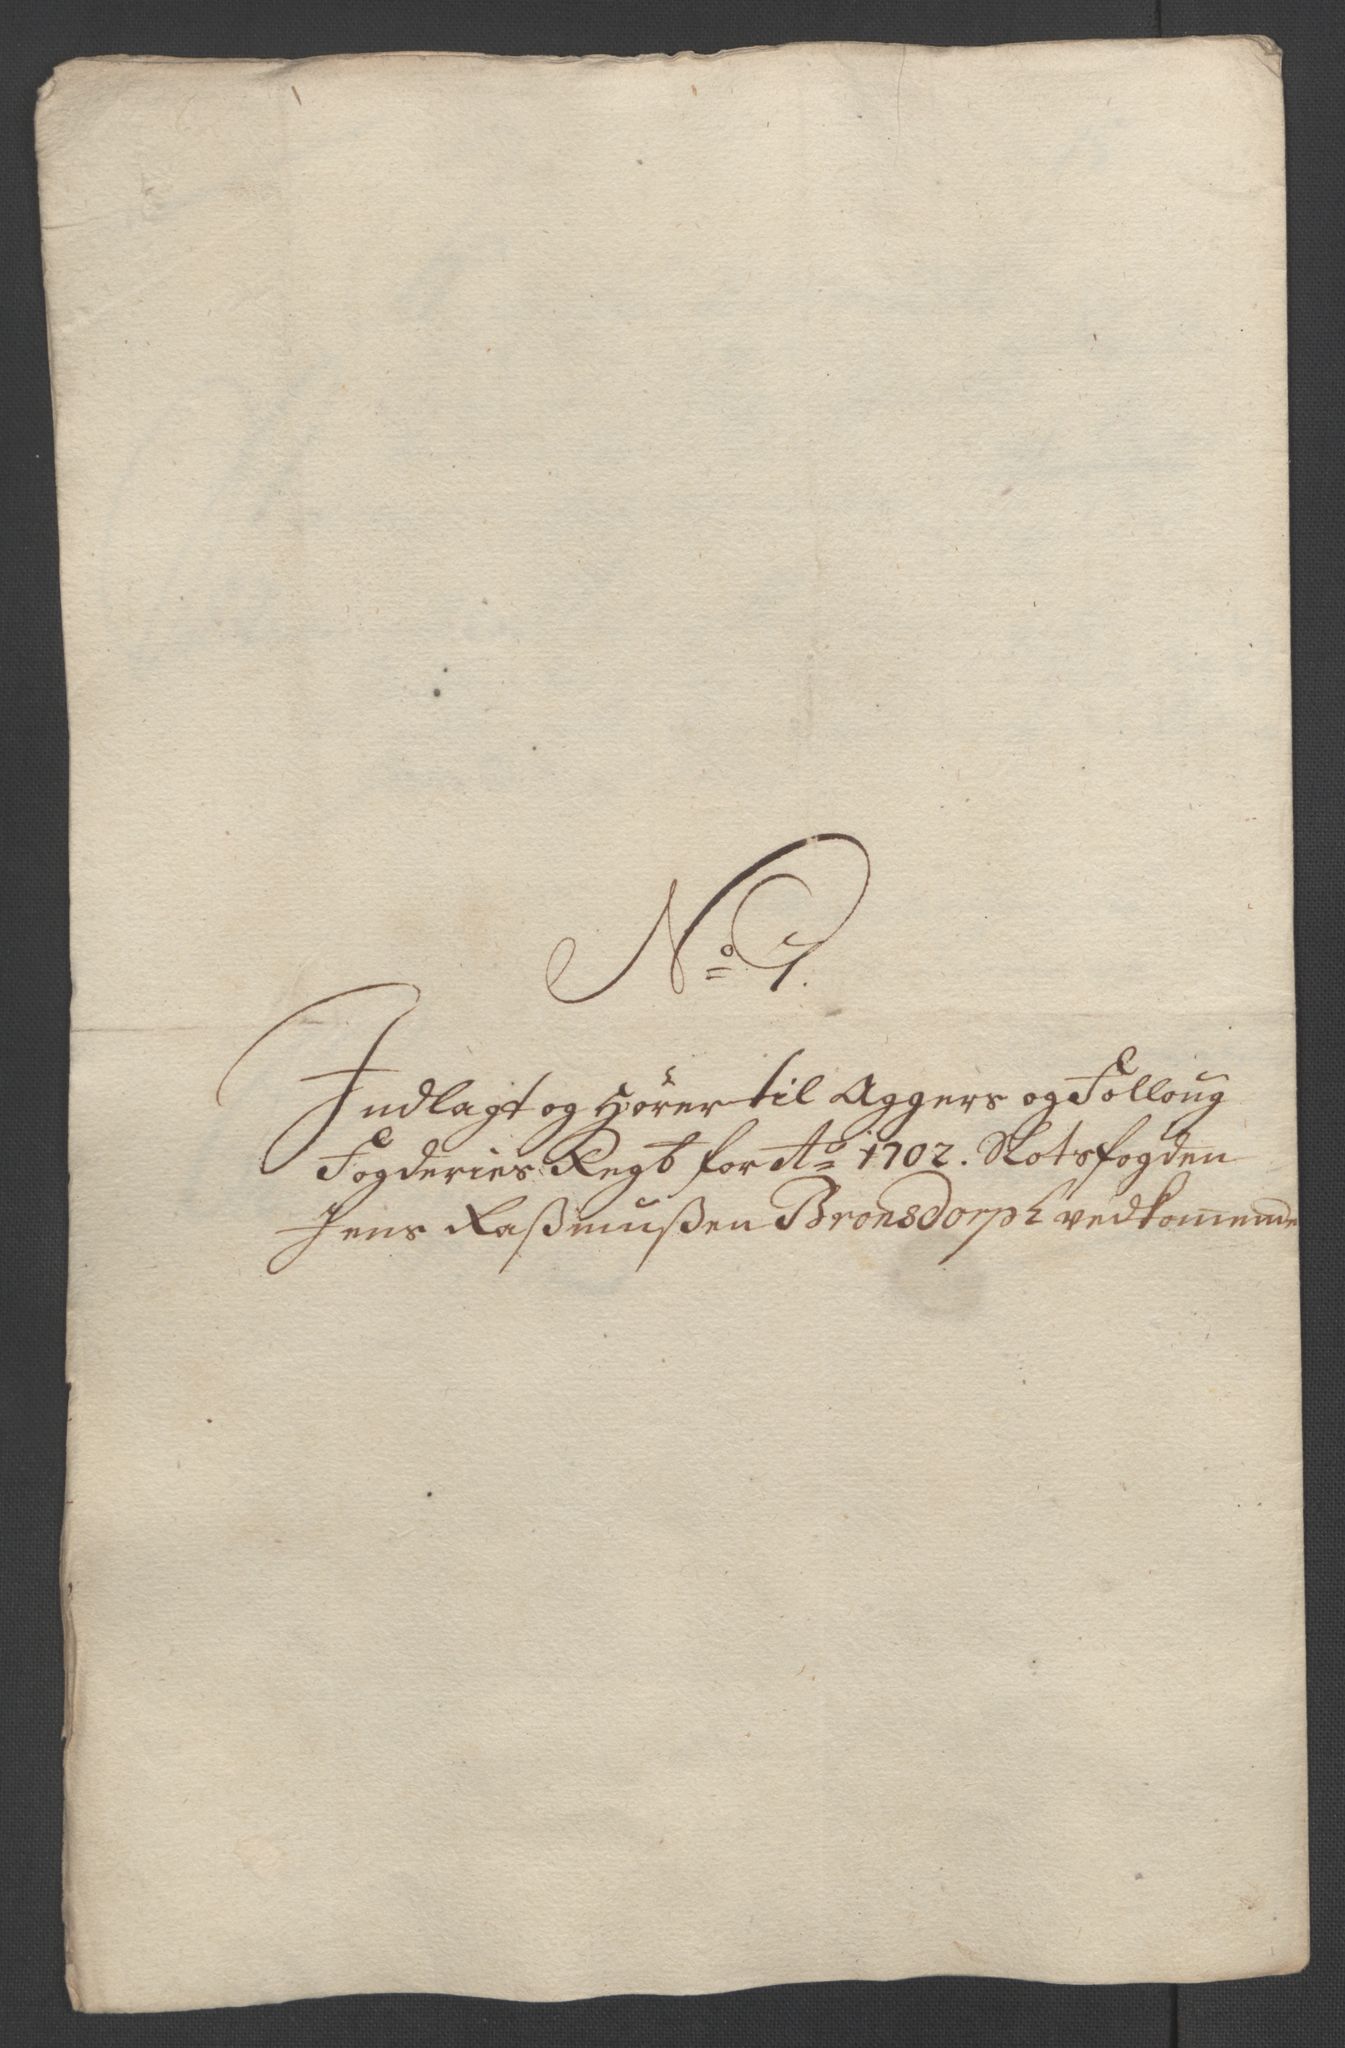 No 7.
Indlagt og Hörer til Aggers og Folloug
Fogderies Regb for Ao 1702. Slotsfogden
Jens Raßmußen Bronsdorph vedkomende